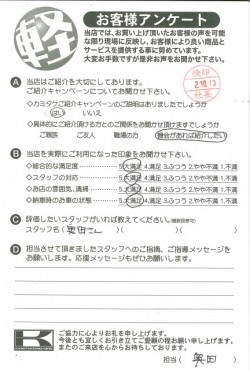 軽
お客様アンケート
当店では、お買い上げ頂いたお客様の声を可能
な限り現場に反映し、お客様により良い商品と
サービスを提供する事に努めています。
大変お手数ですが是非お声をお聞かせ下さい。
検印
2.10.13
社長
A 当店はご紹介を大切にしております。
ご紹介キャンペーンについてお聞かせ下さい。
◇カミタケご紹介キャンペーンのご説明はありましたでしょうか
はい いいえ
◇具体的にご紹介頂ける方とのご関係をお聞かせ頂けますでしょうか
ご親族 ご友人 職場の方 機会があれば紹介したい
B 当店を実際にご利用になった印象をお聞かせ下さい。
◇総合的な満足度 5.大満足 4.満足 3.ふつう 2.やや不満 1.不満
◇スタッフの対応 5.大満足 4.満足 3.ふつう 2.やや不満 1.不満
◇お店の雰囲気、清掃 5.大満足 4.満足 3.ふつう 2.やや不満 1.不満
◇納車時のお車の状態 5.大満足 4.満足 3.ふつう 2.やや不満 1.不満
C 評価したいスタッフがいれば教えてください。(複数回答可)
スタッフ名( 奥田さん )
D 担当させて頂きましたスタッフへのご指摘、ご指導メッセージを
お願いします。応援メッセージもぜひお願いします。
K
ご協力に心よりお礼を申し上げます。
今後とも宜しくお引き立てご愛顧の程お願い申し上げます。
またのご来店を心からお待ちしております。
担当( 奥田 )